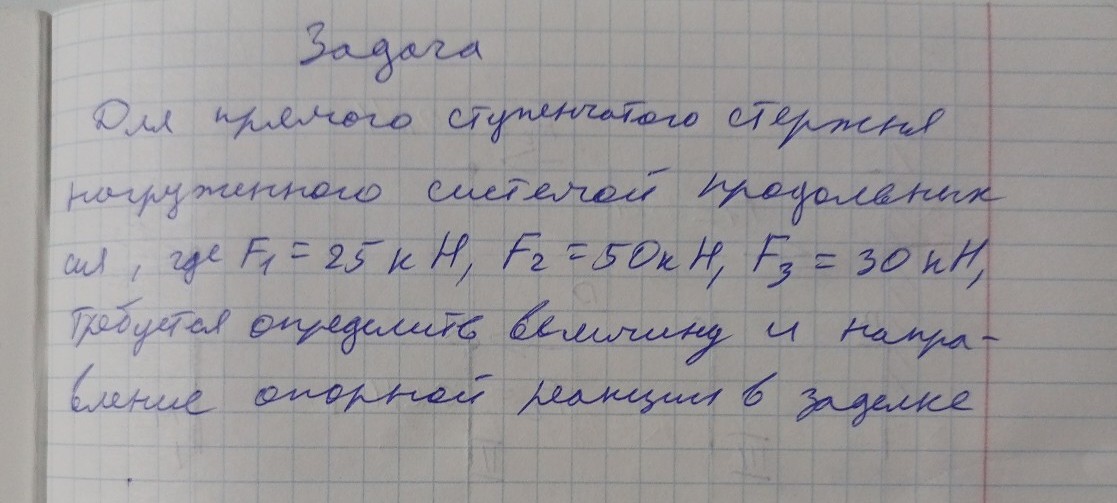 Задача
Для прямого ступенчатого стержня
нагруженного системой продольных
сил, где F₁ = 25 кН, F₂ = 50 кН, F₃ = 30 кН,
требуется определить величину и напра-
вление опорной реакции в заделке